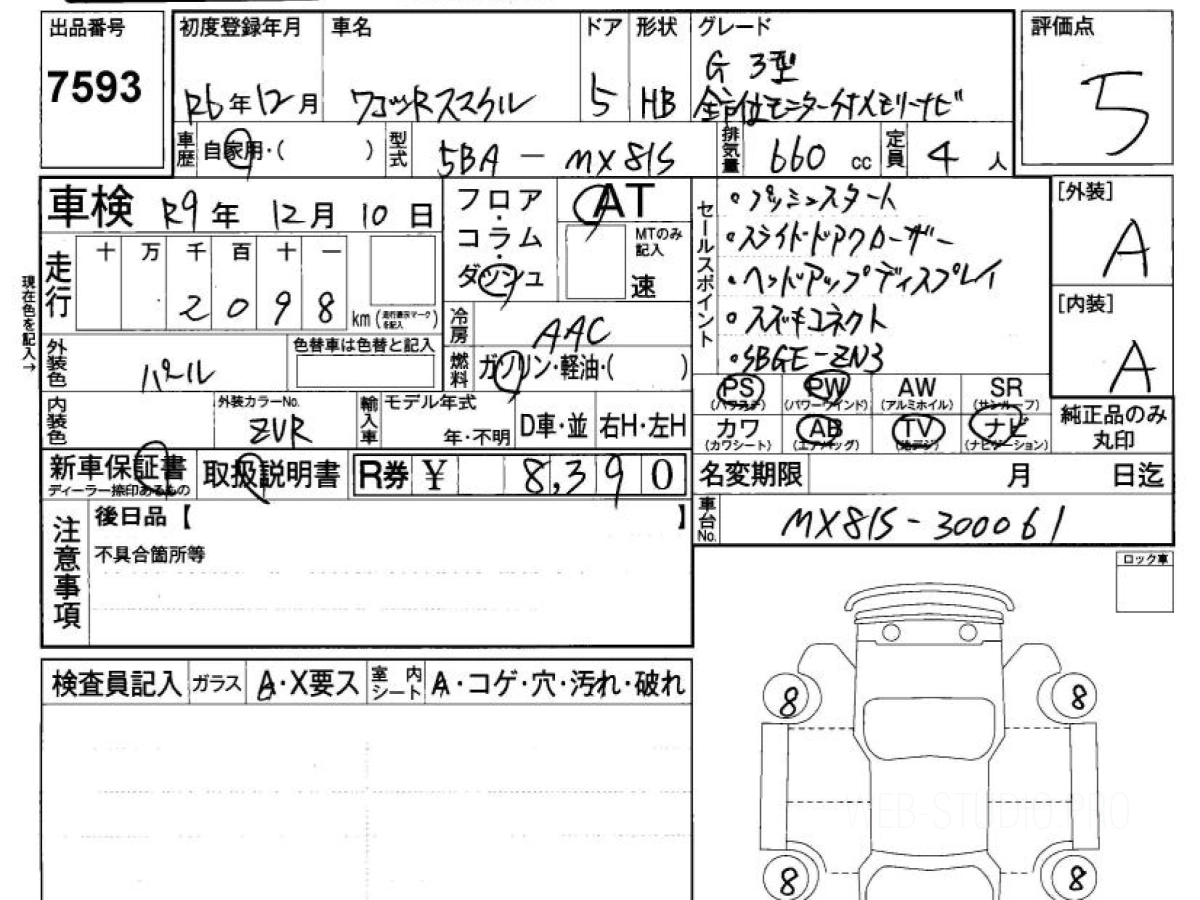 出品番号 7593
初度登録年月 R6年12月
車名 ワゴンRスマイル
ドア 5
形状 HB
グレード G 3型
全方位モニター付メモリーナビ
評価点 5
車歴 自家用・( )
型式 5BA - MX81S
排気量 660 cc
定員 4 人
車検 R9年 12月 10日
フロア・コラム・ダッシュ
AT
MTのみ記入
速
セールスポイント
・プッシュスタート
・スライドドアクローザー
・ヘッドアップディスプレイ
・スズキコネクト
・SBGE-ZN3
[外装] A
[内装] A
現在色を記入→
走行 十 万 千 百 十 一
2 0 9 8 km (走行表示マークを記入)
冷房 AAC
燃料 ガソリン・軽油・( )
外装色 パール
色替車は色替と記入
内装色
外装カラーNo. ZVR
輸入車 モデル年式 年・不明
D車・並 右H・左H
PS (パワステ) PW (パワーウインド) AW (アルミホイル) SR (サンルーフ)
カワ (カワシート) AB (エアバッグ) TV (地デジ) ナビ (ナビゲーション)
純正品のみ丸印
新車保証書 ディーラー捺印あるもの
取扱説明書
R券 ¥ 8,390
名変期限 月 日迄
車台No. MX81S-300061
注意事項
後日品【 】
不具合箇所等
ロック車
検査員記入 ガラス A・X要ス 室内シート A・コゲ・穴・汚れ・破れ
8 8
WEB-STUDIO.PRO
8 8